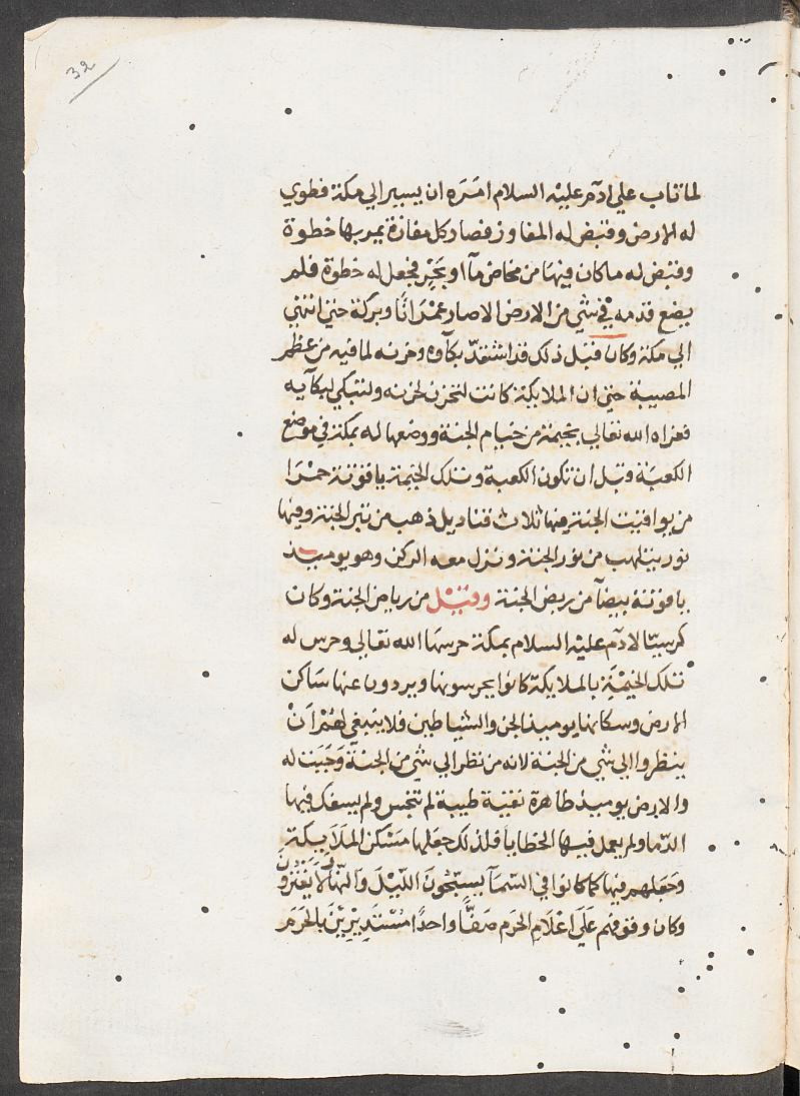 32
لما تاب علي ادم عليه السلام امره ان يسير الي مكة فطوي
له الارض وقبض له المفاوز فصار كل مفازة يمر بها خطوة
وقبض له ما كان فيها من مخاض ماآ او بحر فجعل له خطوة فلم
يضع قدمه في شي من الارض الا صار عمرانًا وبركة حتي انتهي
الي مكة وكان قبل ذلك قد اشتد بكاوه وحزنه لما فيه من عظم
المصيبة حتي ان الملايكة كانت لتحزن لحزنه ولتبكي لبكآيه
فعزاه الله تعالي بخيمة من خيام الجنة ووضعها له بمكة في موضع
الكعبة وقبل ان تكون الكعبة وتلك الخيمة ياقوتة حمرا
من يواقيت الجنة فيها ثلاث قناديل ذهب من تبر الجنة وفيها
نور يلتهب من نور الجنة ونزل معه الركن وهو يوميذ
ياقوتة بيضآ من ربض الجنة وقيل من رياض الجنة وكان
كرسيا لادم عليه السلام بمكة حرسها الله تعالي وحرس له
تلك الخيمة بالملايكة كانوا يحرسونها ويردون عنها ساكن
الارض وسكانها يوميذ الجن والشياطين فلا ينبغي لهم ان
ينظروا الي شي من الجنة لانه من نظر الي شي من الجنة وجبت له
والارض يوميذ طاهرة نقية طيبة لم تنجس ولم يسفك فيها
الدما ولم يعمل فيها الخطايا فلذلك جعلها مسكن الملايكة
وجعلهم فيها كما كانوا في السمآ يسبحون الليل والنهار لا يفترون
وكان وقوفهم علي اعلام الحرم صفًا واحدًا مستديرين بالحرم